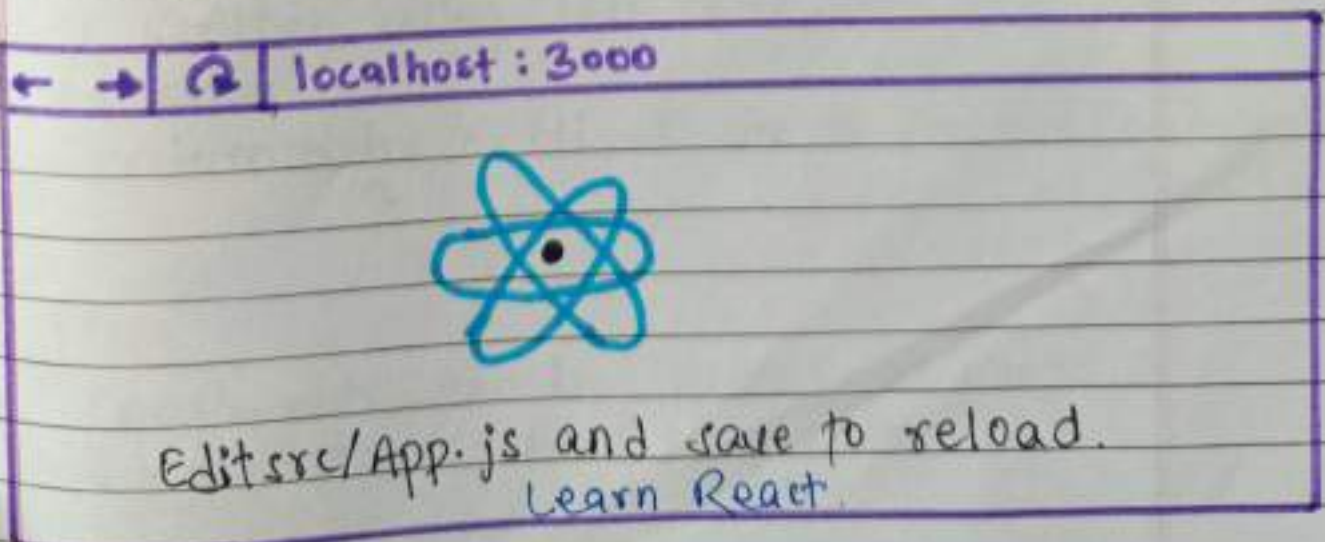 localhost : 3000
Editsrc/App.js and save to reload.
Learn React.